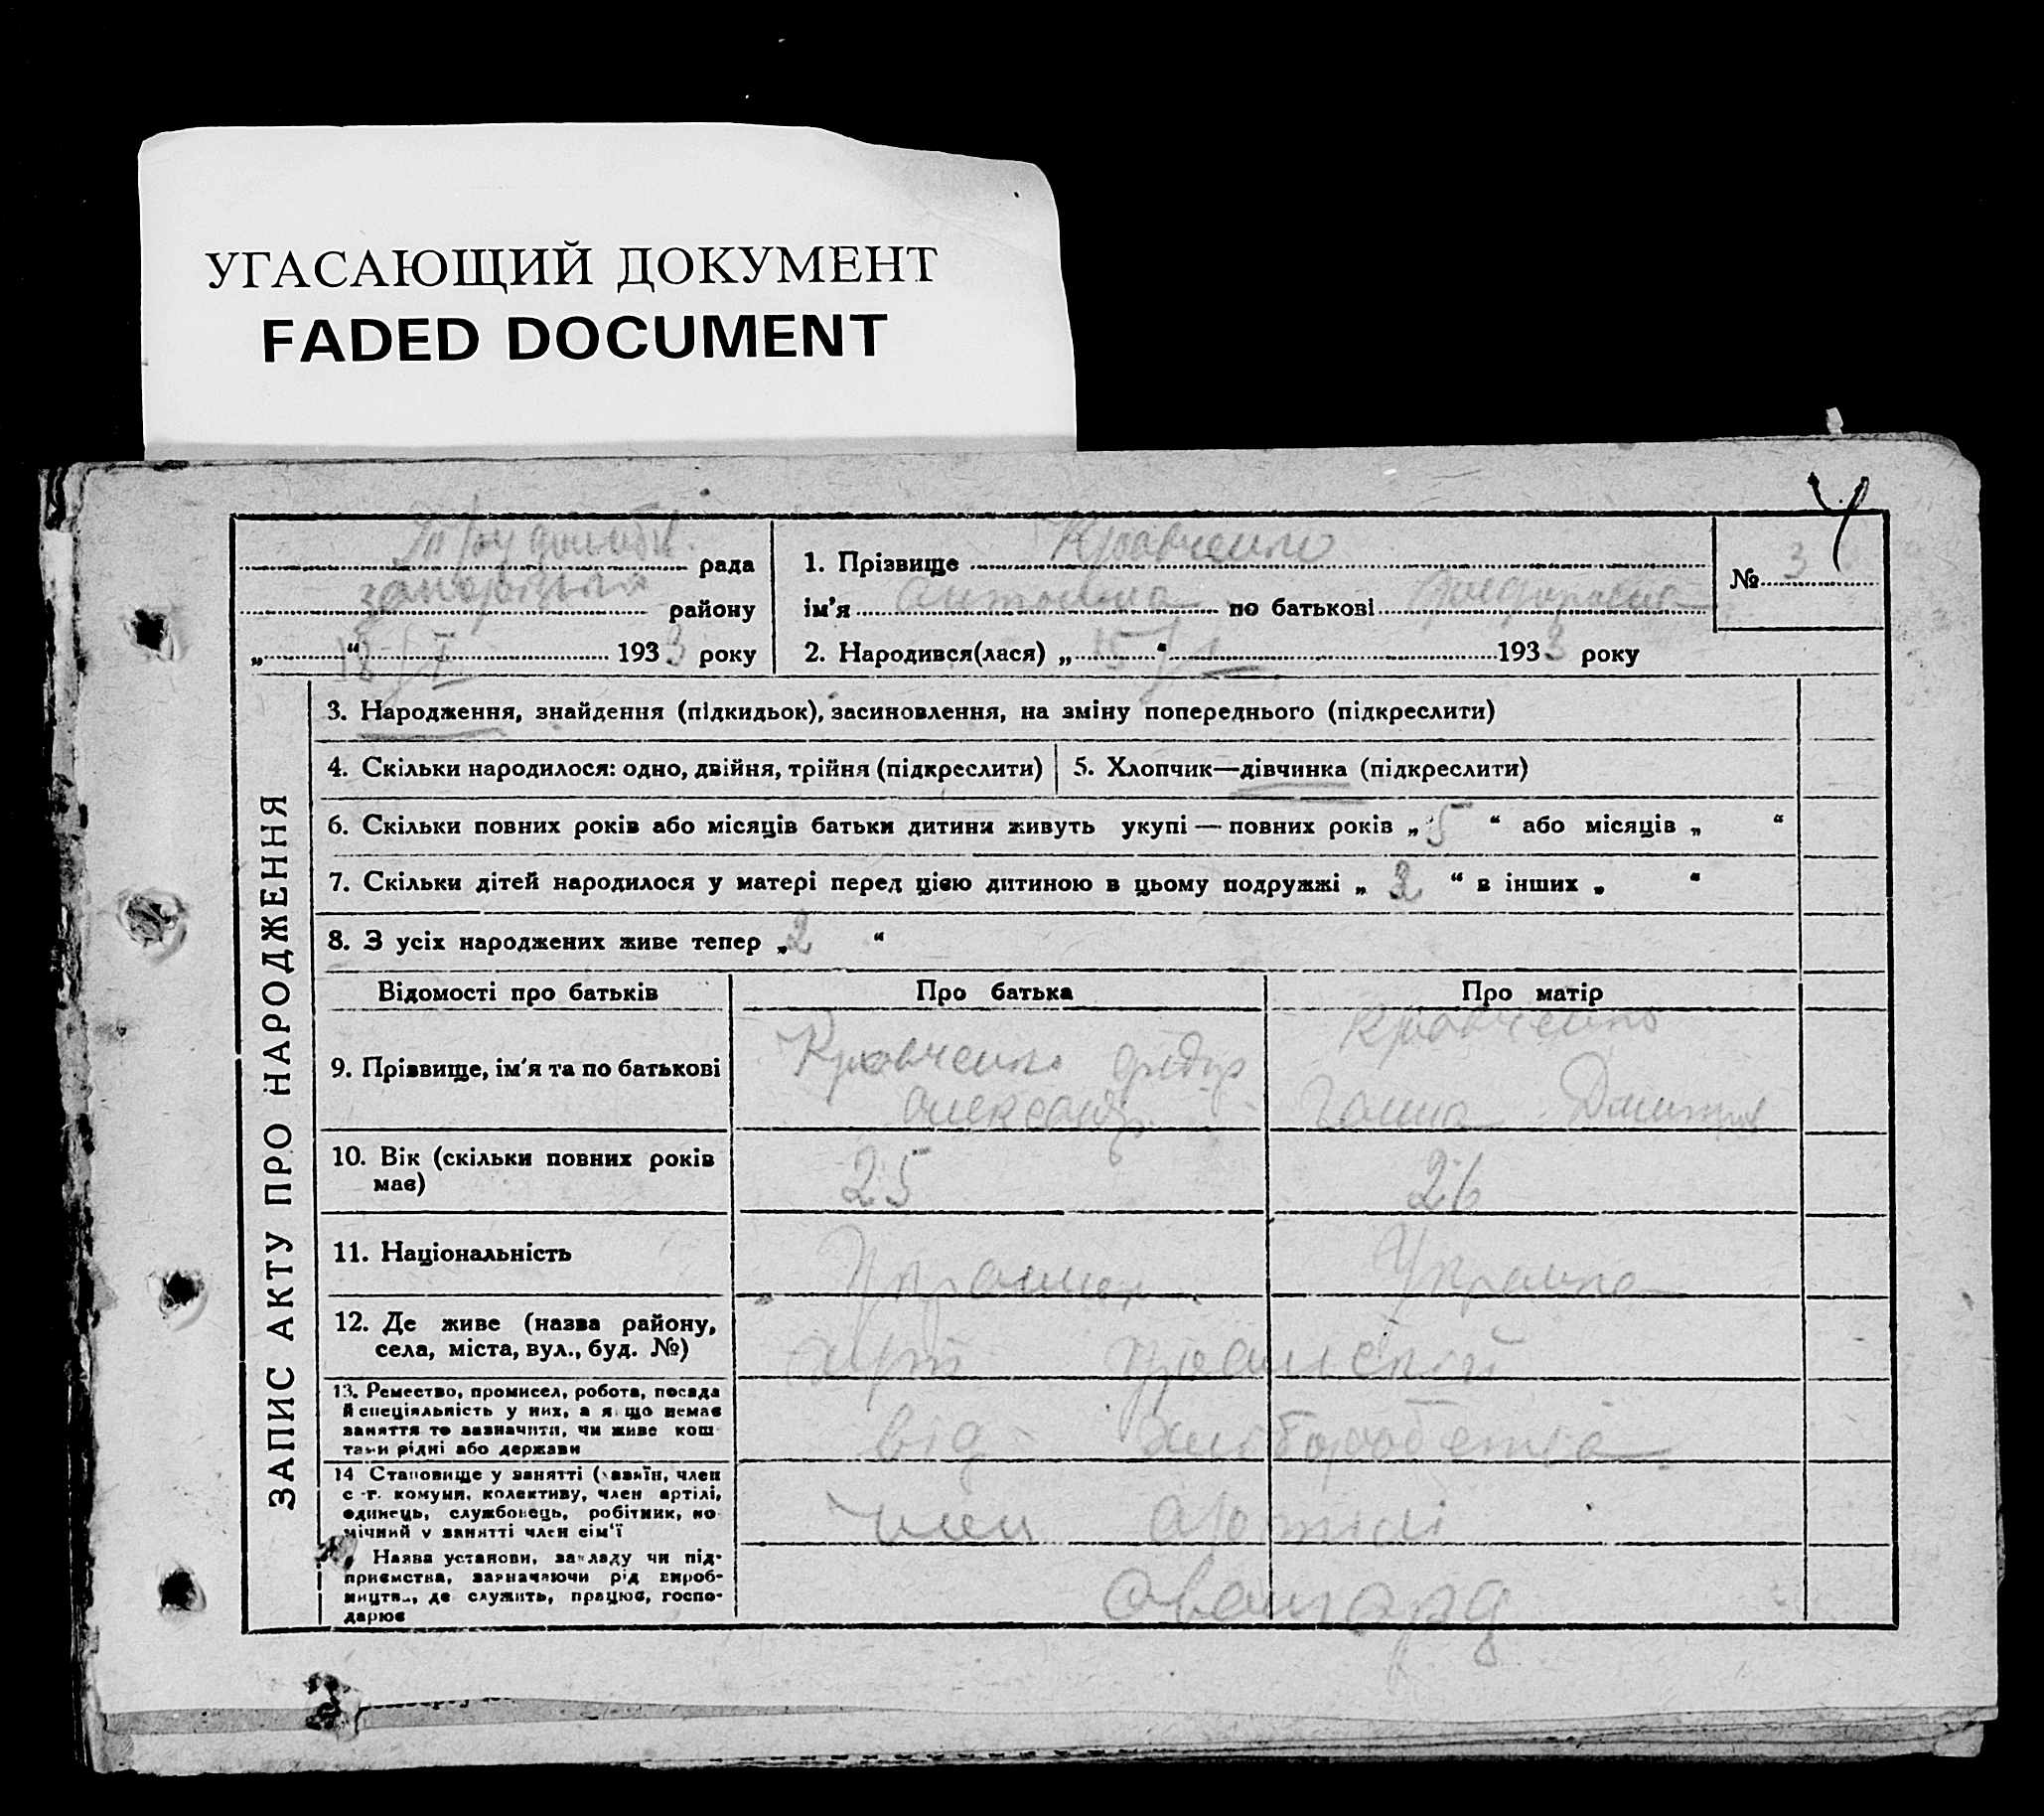 УГАСАЮЩИЙ ДОКУМЕНТ
FADED DOCUMENT
рада
району
18/I 1933 року
1. Прізвище Кравченко
ім’я Антонина по батькові Федоровна
2. Народився(лася) „ 15 “ I 1933 року
№ 3
ЗАПИС АКТУ ПРО НАРОДЖЕННЯ
3. Народження, знайдення (підкидьок), засиновлення, на зміну попереднього (підкреслити)
4. Скільки народилося: одно, двійня, трійня (підкреслити)
5. Хлопчик—дівчинка (підкреслити)
6. Скільки повних років або місяців батьки дитини живуть укупі — повних років „ 5 “ або місяців „ “
7. Скільки дітей народилося у матері перед цією дитиною в цьому подружжі „ 2 “ в інших „ “
8. З усіх народжених живе тепер „ 2 “
Відомості про батьків
Про батька
Про матір
9. Прізвище, ім’я та по батькові
Кравченко Федір
Олександр.
Кравченко
Ганна Дмитров
10. Вік (скільки повних років
має)
25
26
11. Національність
Украинец
Украінка
12. Де живе (назва району,
села, міста, вул., буд. №)
13. Ремество, промисел, робота, посада
й спеціяльність у них, а якщо немає
заняття то зазначити, чи живе кош
тами рідні або держави
від хліборобства
14 Становище у занятті (хазяїн, член
с.-г. комуни, колективу, член артілі,
одинець, службовець, робітник, по
мічний у занятті член сім’ї
член артілі
Назва установи, закладу чи під-
приємства, зазначаючи рід вироб-
ництва, де служить, працює, госпо-
дарює
Авангард